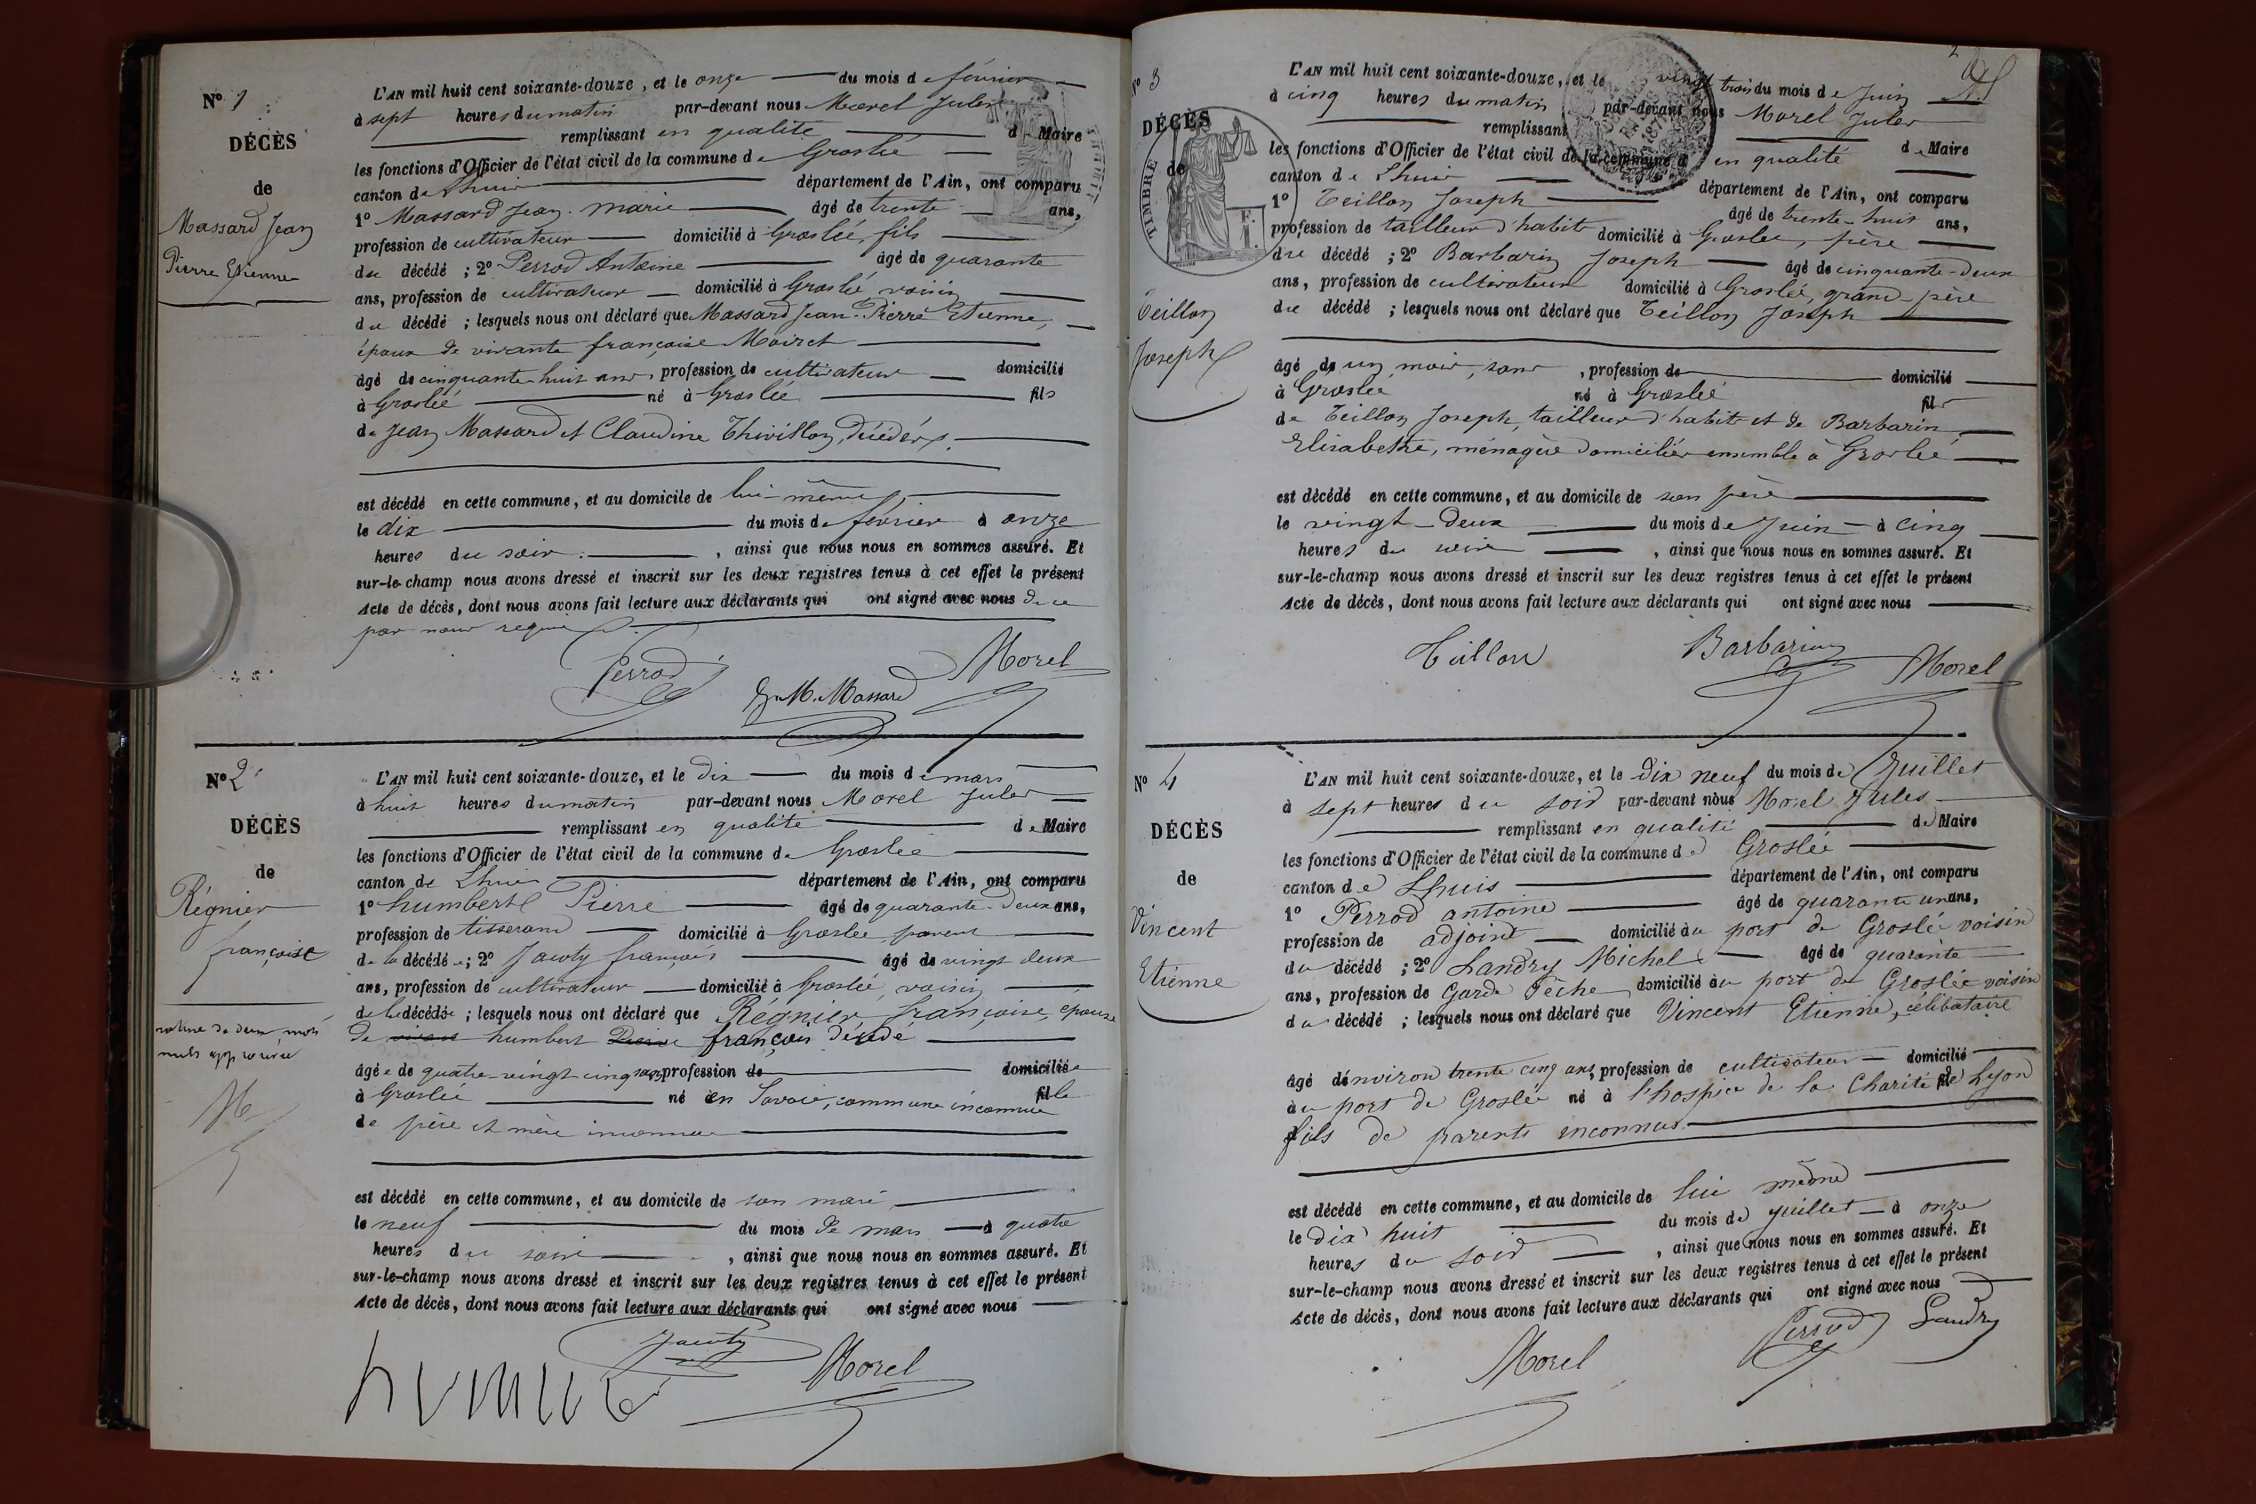 N° 1
DÉCÈS
de
Massard Jean
Pierre Etienne
L'AN mil huit cent soixante-douze, et le onze du mois de février
à sept heures du matin par-devant nous Morel Jules
remplissant en qualité de Maire
les fonctions d'Officier de l'état civil de la commune de Groslée
canton de Lhuis département de l'Ain, ont comparu
1° Massard Jean-marie âgé de trente ans,
profession de cultivateur domicilié à Groslée, fils
du décédé ; 2° Perrod Antoine âgé de quarante
ans, profession de cultivateur domicilié à Groslée voisin
du décédé ; lesquels nous ont déclaré que Massard Jean-Pierre Etienne,
époux de vivante françoise Moiret
âgé de cinquante-huit ans, profession de cultivateur domicilié
à Groslée né à Groslée fils
de Jean Massard et Claudine Thivillon, décédés.
est décédé en cette commune, et au domicile de lui-même,
le dix du mois de février à onze
heures du soir. , ainsi que nous nous en sommes assuré. Et
sur-le-champ nous avons dressé et inscrit sur les deux registres tenus à cet effet le présent
Acte de décès, dont nous avons fait lecture aux déclarants qui ont signé avec nous de ce
par nous requis
Perrod
J. M. Massard
Morel
N° 2
DÉCÈS
de
Régnier
françoise
rature de deux mots
nuls approuvée
L'AN mil huit cent soixante-douze, et le dix du mois de mars
à huit heures du matin par-devant nous Morel Jules
remplissant en qualité de Maire
les fonctions d'Officier de l'état civil de la commune de Groslée
canton de Lhuis département de l'Ain, ont comparu
1° humbert Pierre âgé de quarante-deux ans,
profession de tisserand domicilié à Groslée parent
de la décédée ; 2° Jawty françois âgé de vingt deux
ans, profession de cultivateur domicilié à Groslée, voisin
de la décédée ; lesquels nous ont déclaré que Régnier françoise, épouse
de humbert Pierre françois décédé
âgée de quatre-vingt cinq ans, profession de domiciliée
à Groslée né en Savoie, commune inconnue fille
de père et mère inconnus
est décédé en cette commune, et au domicile de son mari
le neuf du mois de mars à quatre
heures du soir , ainsi que nous nous en sommes assuré. Et
sur-le-champ nous avons dressé et inscrit sur les deux registres tenus à cet effet le présent
Acte de décès, dont nous avons fait lecture aux déclarants qui ont signé avec nous
Jawty
Morel
2
N° 3
DÉCÈS
de
TIMBRE
Teillon
Joseph
L'AN mil huit cent soixante-douze, et le vingt trois du mois de Juin
à cinq heures du matin par-devant nous Morel Jules
remplissant en qualité de Maire
les fonctions d'Officier de l'état civil de la commune d
canton de Lhuis département de l'Ain, ont comparu
1° Teillon Joseph âgé de trente-huit ans,
profession de tailleur d'habits domicilié à Groslée, père
du décédé ; 2° Barbarin Joseph âgé de cinquante-deux
ans, profession de cultivateur domicilié à Groslée, grand-père
du décédé ; lesquels nous ont déclaré que Teillon Joseph
âgé de un mois, sans , profession de domicilié
à Groslée né à Groslée fils
de Teillon Joseph, tailleur d'habits et de Barbarin
Elisabethe, ménagère domiciliés ensemble à Groslée
est décédé en cette commune, et au domicile de son père
le vingt-deux du mois de Juin à cinq
heures du soir , ainsi que nous nous en sommes assuré. Et
sur-le-champ nous avons dressé et inscrit sur les deux registres tenus à cet effet le présent
Acte de décès, dont nous avons fait lecture aux déclarants qui ont signé avec nous
Teillon
Barbarin
Morel
N° 4
DÉCÈS
de
Vincent
Etienne
L'AN mil huit cent soixante-douze, et le dix neuf du mois de Juillet
à sept heures du soir par-devant nous Morel Jules
remplissant en qualité de Maire
les fonctions d'Officier de l'état civil de la commune de Groslée
canton de Lhuis département de l'Ain, ont comparu
1° Perrod antoine âgé de quarante un ans,
profession de adjoint domicilié au port de Groslée voisin
du décédé ; 2° Landry Michel âgé de quarante
ans, profession de Garde Pêche domicilié au port de Groslée voisin
du décédé ; lesquels nous ont déclaré que Vincent Etienne, célibataire
âgé d'environ trente cinq ans, profession de cultivateur domicilié
au port de Groslée né à l'hospice de la Charité de Lyon
fils de parents inconnus
est décédé en cette commune, et au domicile de lui même
le dix huit du mois de juillet à onze
heures du soir , ainsi que nous nous en sommes assuré. Et
sur-le-champ nous avons dressé et inscrit sur les deux registres tenus à cet effet le présent
Acte de décès, dont nous avons fait lecture aux déclarants qui ont signé avec nous
Morel
Perrod
Landry